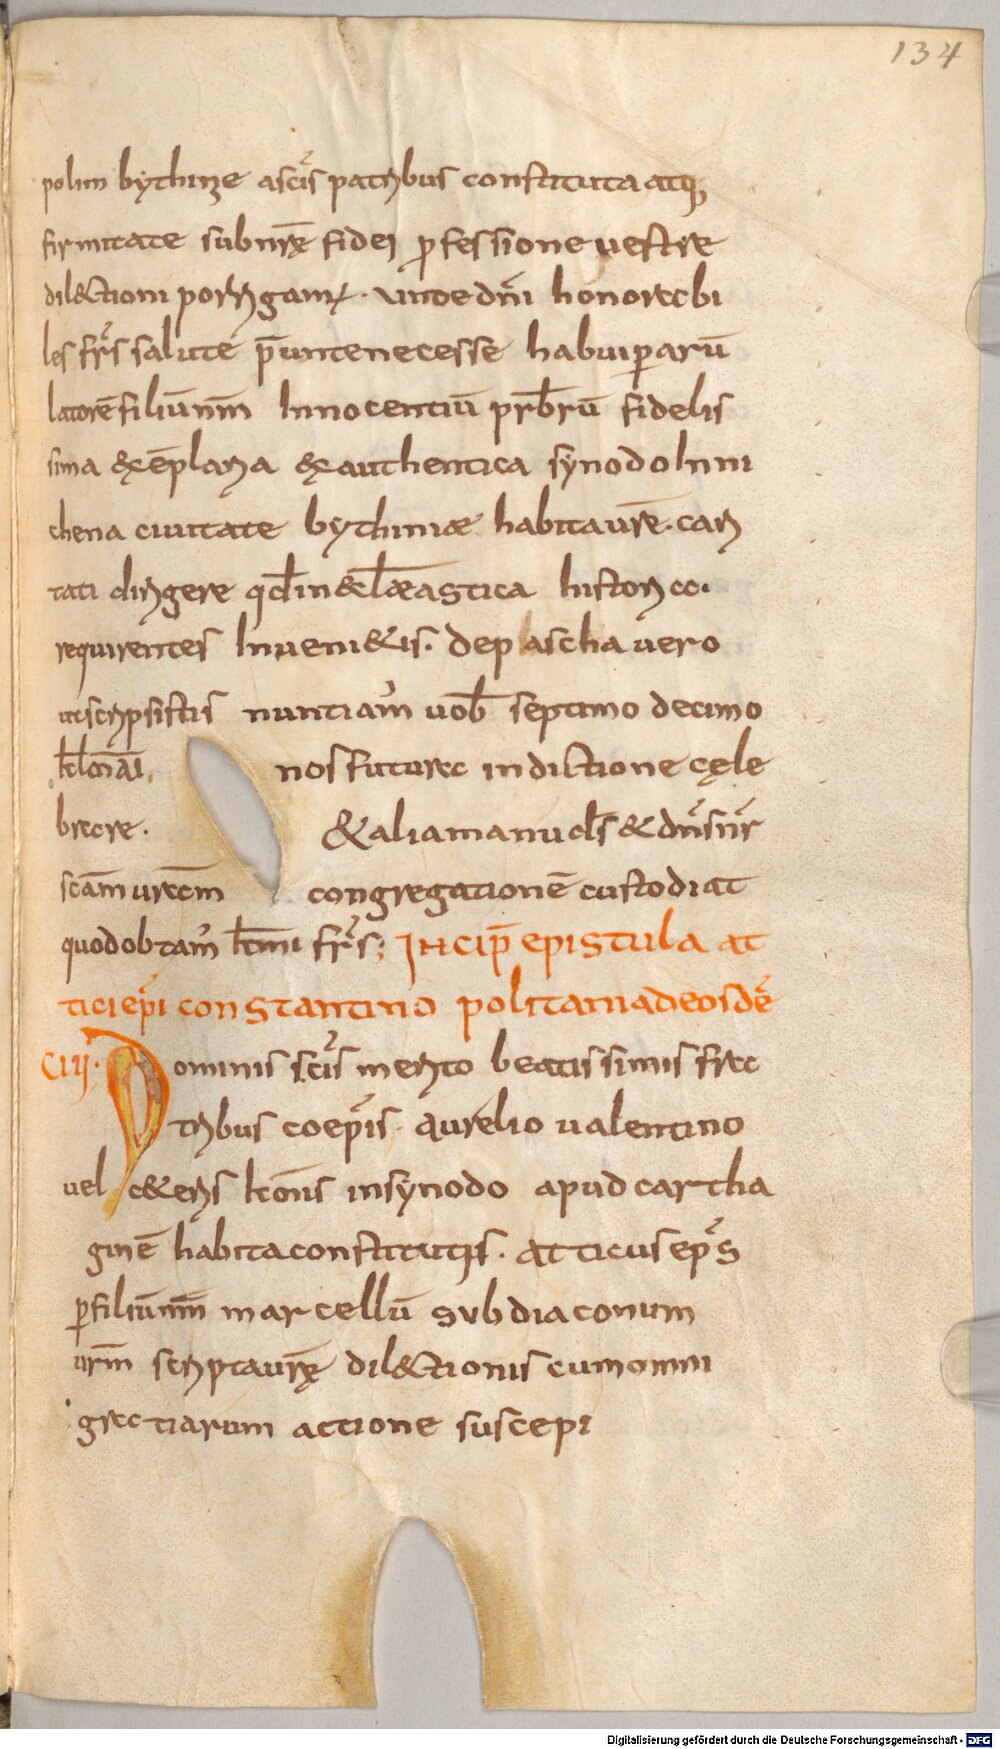 134
polim bythiniae a scīs patribus constituta atq;
firmitate sub nrę̄ fidei professione uestre
dil&tioni porrigam; . unde dn̄i honorabi
les frs̄ salutē p̄untē necesse habui parū
latorē filiū nm̄ Innocentiū prb̄rū fidelis
sima &ēplaria & authentica synodo In ni
chena ciuitate bythiniæ habitaurē. cari
tati dirigere qd̄ in &cl̄æastica historia.
requirentes Inueni&is. de pascha uero
ut scripsistis nuntiam̄ uob̄ septimo decimo
kl̄ mai. nos futura indictione cęle
brare. & alia manu ds̄ & dn̄s nr̄
scām uram̄ congregationē custodiat
quod obtam̄ km̄i frs̄; INCIP̄ epistula at
tici ep̄i constantinopolitani ad eosdē
CIIJ. Dominis scīs merito beatissimis fra
tribus coep̄is. aurelio ualentino
uel c&eris kōnis in synodo apud cartha
ginē habita constitutis. Atticus ep̄s
p filiū nm̄ marcellū subdiaconum
urm̄ scripta urę̄ dil&tionis cum omni
gratiarum actione suscepi
Digitalisierung gefördert durch die Deutsche Forschungsgemeinschaft - DFG